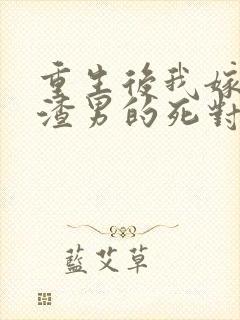 重生後我嫁
渣男的死對
藍艾草